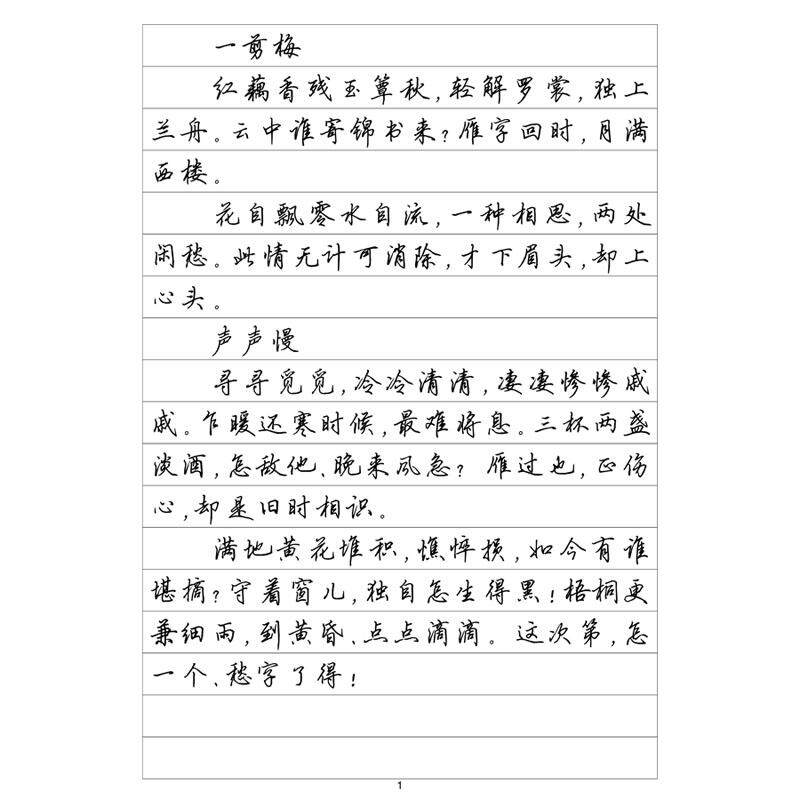 一剪梅
红藕香残玉簟秋,轻解罗裳,独上
兰舟。云中谁寄锦书来?雁字回时,月满
西楼。
花自飘零水自流,一种相思,两处
闲愁。此情无计可消除,才下眉头,却上
心头。
声声慢
寻寻觅觅,冷冷清清,凄凄惨惨戚
戚。乍暖还寒时候,最难将息。三杯两盏
淡酒,怎敌他、晚来风急? 雁过也,正伤
心,却是旧时相识。
满地黄花堆积,憔悴损,如今有谁
堪摘?守着窗儿,独自怎生得黑!梧桐更
兼细雨,到黄昏、点点滴滴。这次第,怎
一个、愁字了得!
1